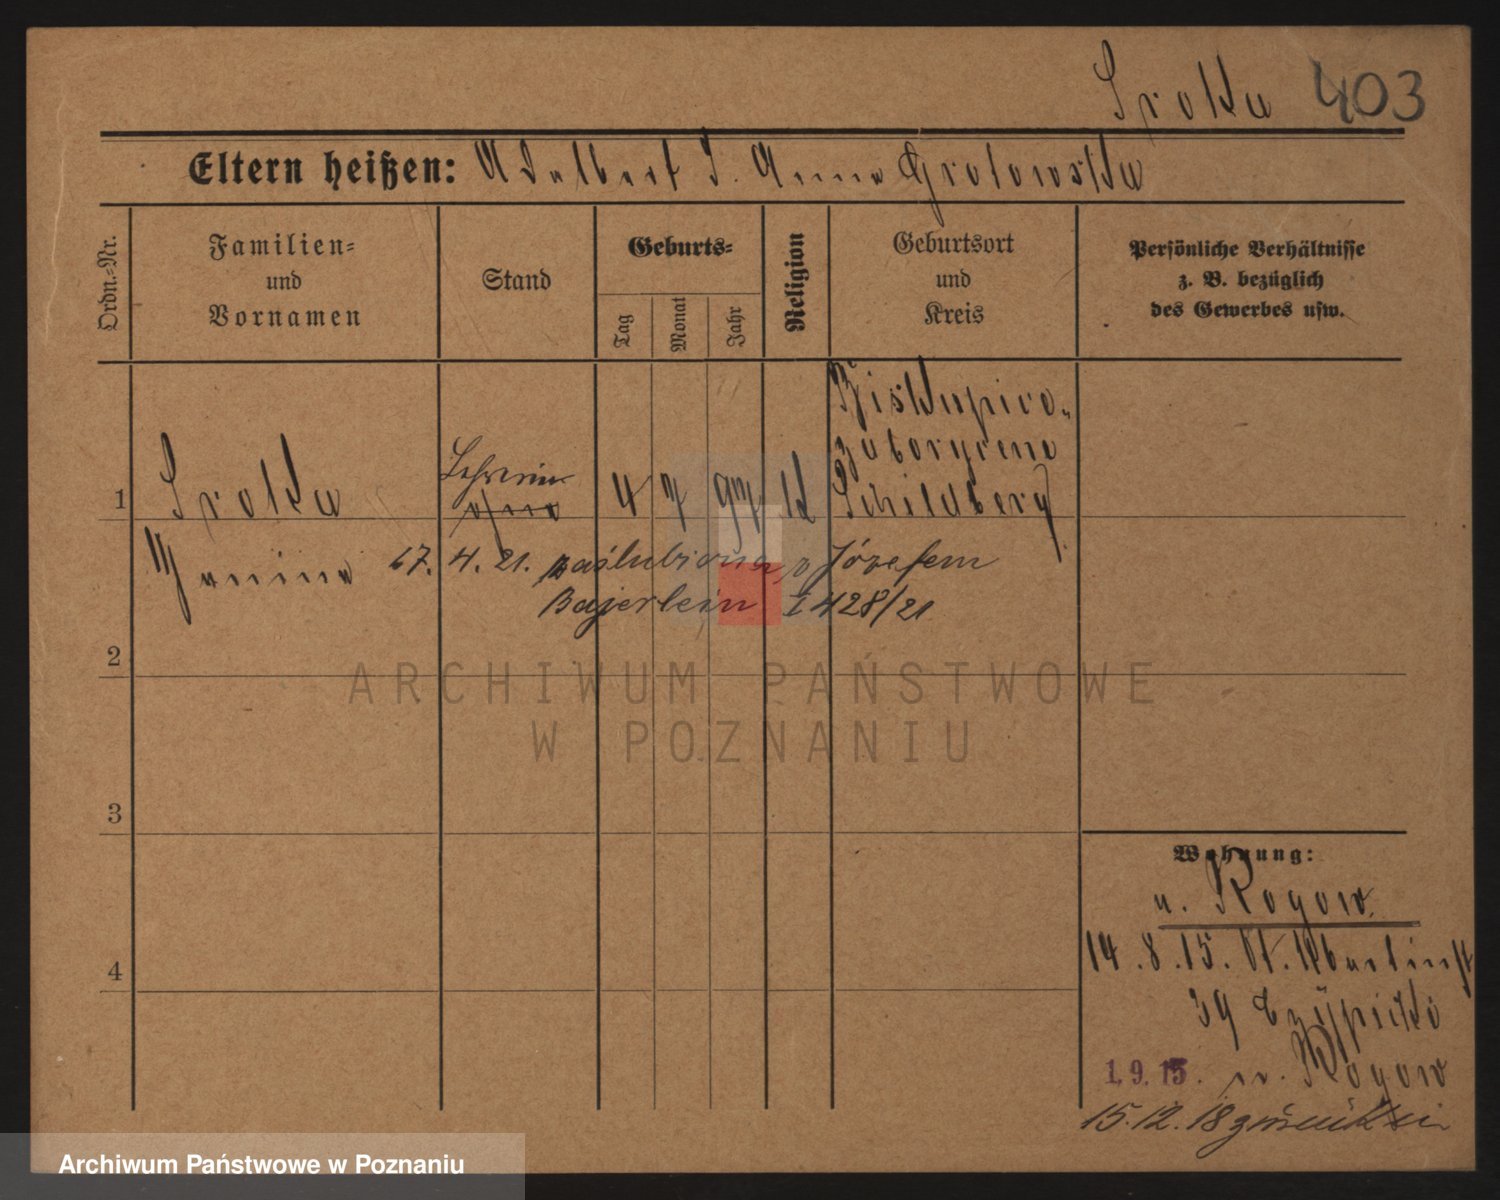 Sroka 403
Eltern heißen: Adalbert S. Anna Grotowska
Ordn.-Nr.
Familien-
und
Vornamen
Stand
Geburts-
Tag
Monat
Jahr
Religion
Geburtsort
und
Kreis
Persönliche Verhältnisse
z. B. bezüglich
des Gewerbes usw.
1 Sroka
Lehrerin
4 7 97 k
Biskupice-
Zaboryczne
Schildberg
Janina 17. 4. 21. zaślubiona z Józefem
Bajerlein I 428/21
2
ARCHIWUM PAŃSTWOWE
W POZNANIU
3
4
Wohnung:
n. Rogow
14.8.15. Berlinst
39
1.9.15. n. Rogow
15.12.18
Archiwum Państwowe w Poznaniu